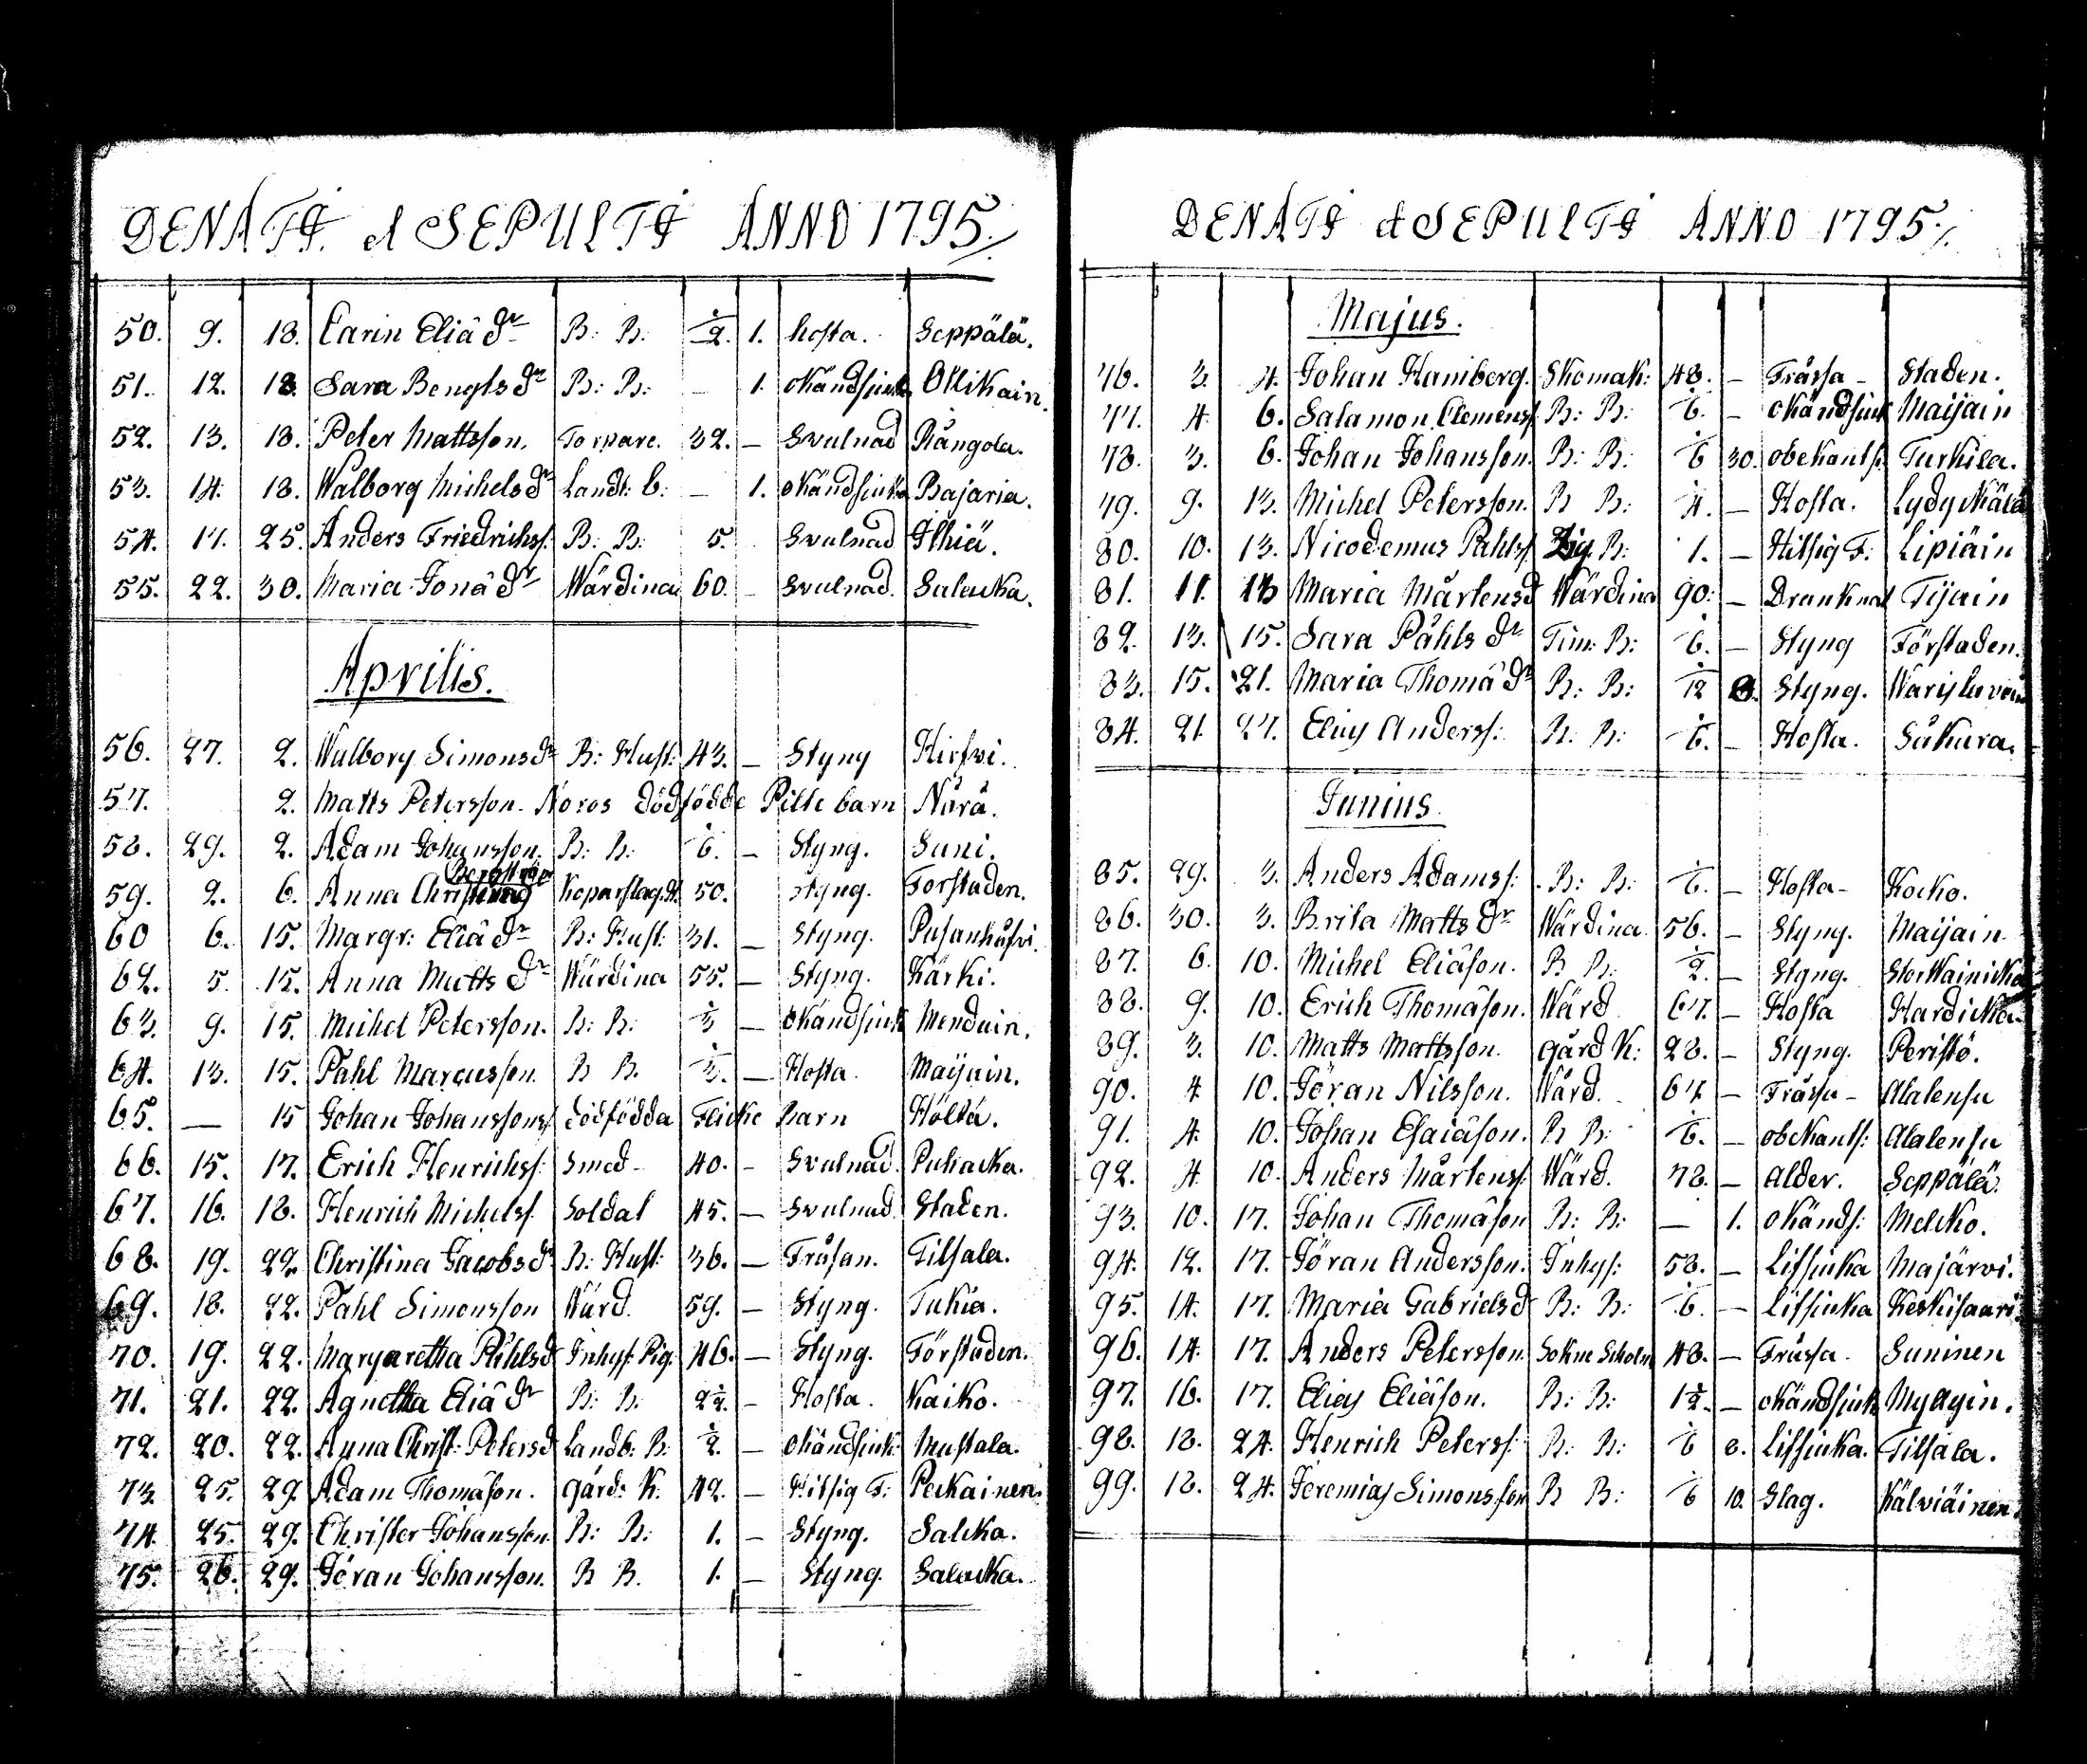 DENATI et SEPULTI ANNO 1795./.
50. 9. 18. Carin Eliä dr B: B: 1/2. 1. hosta. Seppälä.
51. 12. 18. Sara Bengts dr B: B: – 1. okändsjuk Ollikain.
52. 13. 18. Peter Mattsson. Torpare. 32. – Svulnad Rångola.
53. 14. 18. Walborg Michels dr Landt: b: – 1. okändsjuk Bajaria.
54. 17. 25. Anders Friedrichss. B: B: 5. Svulnad Ihiä.
55. 22. 30. Maria Jonä dr Wärdina 60. – Svulnad. Salacka.
Aprilis.
56. 27. 2. Walborg Simons dr B: Hust: 43. – Styng Hirfvi.
57. 2. Matts Petersson. Noros dödfödde Pilte barn Nårå.
58. 29. 2. Adam Johansson. B: B: 6. – Styng. Suni.
59. 2. 6. Anna Christina Koparslag. 50. Styng. Forstaden.
60 6. 15. Margr: Eliä dr B: Hust: 31. – Styng.
62. 5. 15. Anna Matts dr Wärdina 55. – Styng. Kärki.
63. 9. 15. Michel Petersson. B: B: 1/3 – okändsjuk Menduin.
64. 13. 15. Påhl Marcusson. B B. 1/3. – Hosta. Maijain.
65. — 15 Johan Johanssons dödfödda Flicke barn Höltä.
66. 15. 17. Erich Henrichss: Smed – 40. – Svulnad. Puhacka.
67. 16. 18. Henrich Michelss. Soldat 45. – Svulnad Staden.
68. 19. 22. Christina Jacobs dr B: Hust: 36. – Fråsan. Tilsala.
69. 18. 22. Påhl Simonsson Wärd. 59. – Styng. Tukia.
70. 19. 22. Margaretha Påhlsd Inhys Pig. 46. – Styng. Förstaden.
71. 21. 22. Agnetha Eliä dr B: B: 2 1/2. – Hosta. Kaiko.
72. 20. 22. Anna Christ: Petersd Landb: B: 1/2. – okändsjuk: Mustala.
73. 25. 29. Adam Thomäson. gård: K: 42. – Hitsig F: Peckainen.
74. 25. 29. Christer Johansson. B: B: 1. – Styng. Salcka.
75. 26. 29. Jöran Johansson. B B. 1. – Styng. Salacka.
DENATI et SEPULTI ANNO 1795./.
Majus.
76. 3. 4. Johan Hamberg. Skomak: 48. – Fråssa – Staden.
77. 4 6. Salamon Clemenss. B: B: 6. – okändsjuk Maijain
78. 3. 6. Johan Johansson. B: B: 6 30. obekants. Turkila.
79. 9. 13. Michel Petersson. B B: 4. – Hosta.
80. 10. 13. Nicodemus Påhlss Zig. B: 1. – Hitsig F: Lipiäin
81. 11. 13 Maria Mårtensd Wärdina 90: – Drunknat Tijain
82. 13. 15. Sara Påhls dr Tim: B: 6. – Styng Förstaden.
83. 15. 21. Maria Thomä dr B: B: 12 8. Styng.
84. 21 27. Elias Anderss: B: B: 6. – Hosta. Såkura.
Junius.
85. 29. 3. Anders Adamss: B: B: 6. – Hosta – Kocko.
86. 30. 3. Brita Matts dr Wärdina. 56. – Styng. Maijain
87. 6. 10. Michel Eliäson. B B: 1/2. – Styng. StorWainicka
88. 9. 10. Erich Thomäson. Wärd 67. – Hosta Hardicka.
89. 3. 10. Matts Mattsson. gård K: 28. – Styng. Peristö.
90. 4 10. Jöran Nilsson. Wärd. 67 – Fråssa – Alalensu
91. 4. 10. Johan Esaiäson. B B: 6. – obekants: Alalensu
92. 4. 10. Anders Mårtenss. Wärd. 78. – Ålder. Seppälä.
93. 10. 17. Johan Thomäson B: B: — 1. okänds: Melcko.
94. 12. 17. Jöran Andersson. Inhys: 58. – Lifsjucka Majärvi.
95. 14. 17. Maria Gabrielsd B: B: 6. – Lifsjucka Keskisaari
96. 14. 17. Anders Petersson. Sokne Skolm 48. – Fråssa. Suninen
97. 16. 17. Elias Eliäson. B: B: 1 1/2. – okändsjuk Myllyin.
98. 18. 24. Henrich Peterss: B: B: 6 8. Lifsjucka. Tilsala.
99. 18. 24. Jeremias Simonsson B B: 6 10. Slag. Kälviäinen.